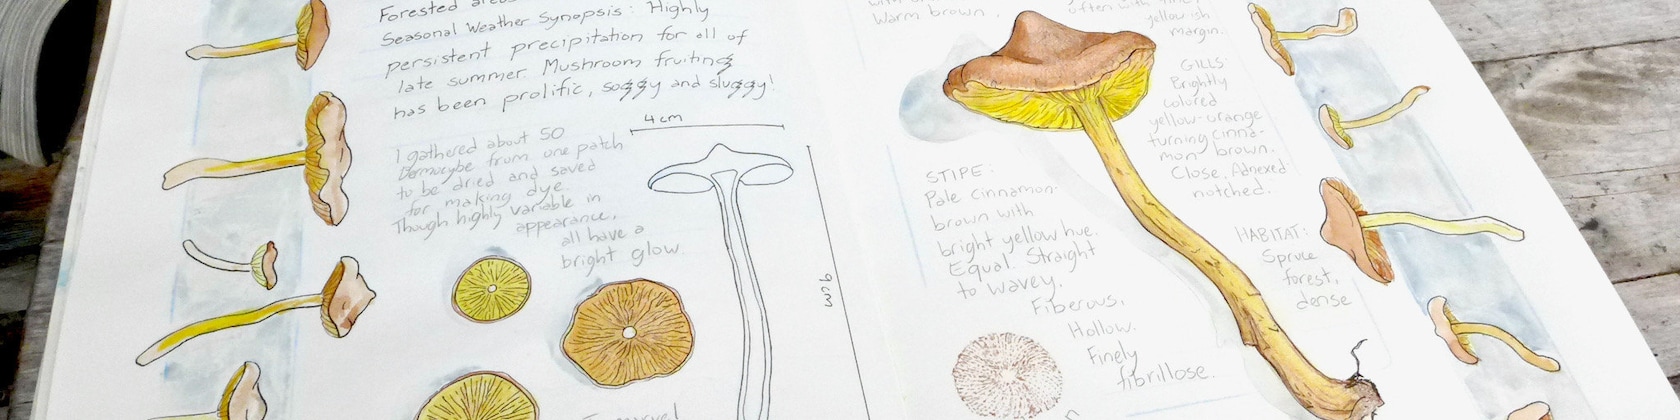 Forested areas
Seasonal Weather Synopsis: Highly
persistent precipitation for all of
late summer. Mushroom fruiting
has been prolific, soggy and sluggy!
I gathered about 50
Dermocybe from one patch
to be dried and saved
for making dye.
Though highly variable in
appearance,
all have a
bright glow.
4cm
9cm
I marvel
Warm brown.
often with
yellowish
margin.
GILLS:
Brightly
colored
yellow-orange
turning cinna-
mon brown.
Close, Adnexed
notched.
STIPE:
Pale cinnamon-
brown with
bright yellow hue.
Equal. Straight
to wavey.
Fiberous,
Hollow.
Finely
fibrillose.
HABITAT:
Spruce
forest,
dense